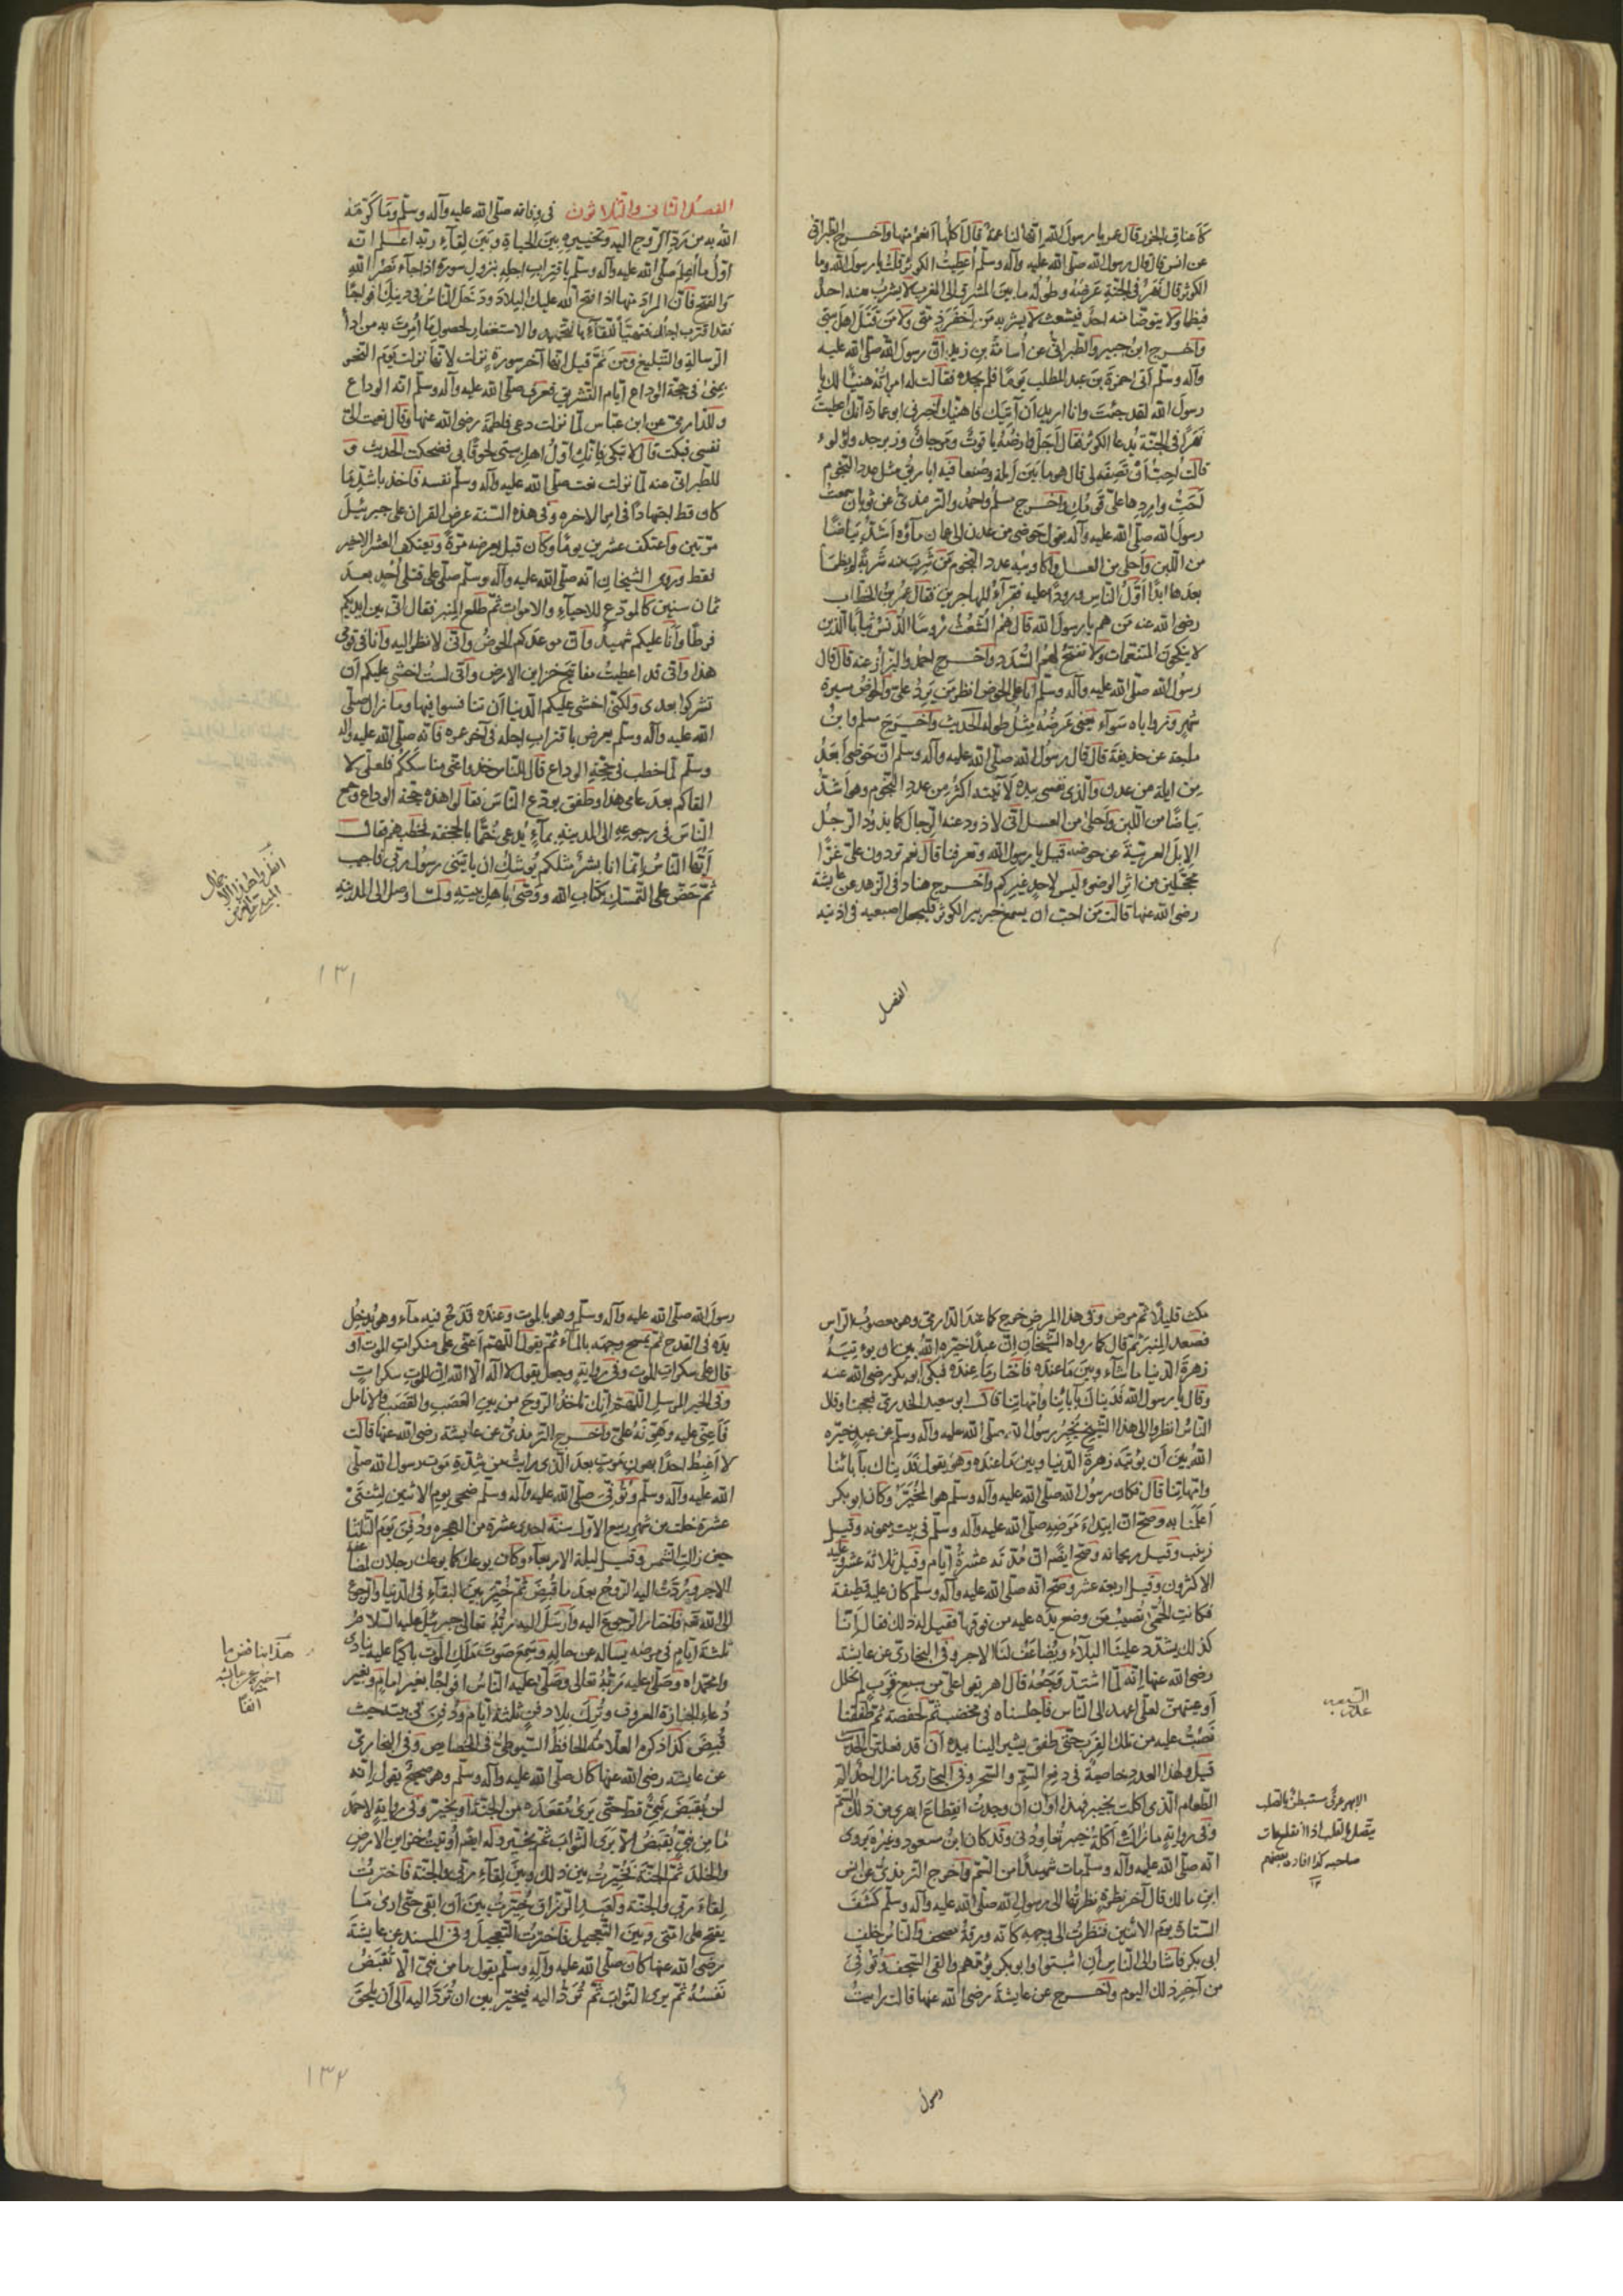 كأعناق الجزر قال عمر يا رسول الله انها لناعمة قال آكلها أنعم منها وأخرج الطبراني
عن انس قال قال رسول الله صلى الله عليه وآله وسلم أعطيت الكوثر قلت يا رسول الله وما
الكوثر قال نهر في الجنة عرضه وطوله ما بين المشرق الى المغرب لا يشرب منه احد
فيظما ولا يتوضا منه احد فيشعث لا يشربه من اخفر ذمتي ولا من قتل اهل بيتي
وأخرج ابن جرير والطبراني عن أسامة بن زيد ان رسول الله صلى الله عليه
وآله وسلم أتى حمزة بن عبد المطلب يوما فلم يجده فقالت له امرأته هنيئا لك يا
رسول الله لقد جئت وانا اريد أن آتيك فاهنيك أخبرني ابو عمارة أنك اعطيت
نهرا في الجنة يدعا الكوثر فقال أجل وارضه ياقوت ومرجان وزبرجد ولؤلوء
قالت احب أن تصفه لي قال هو ما بين أيلة وصنعا فيه اباريق مثل عدد النجوم
أحب واردها علي قومك وأخرج مسلم واحمد والترمذي عن ثوبان سمعت
رسول الله صلى الله عليه وآله يقول حوضي من عدن الى عمان ماؤه أشد بياضا
من اللبن وأحلى من العسل وأكاويبه عدد النجوم من شرب منه شربة لم يظمأ
بعدها ابدا أول الناس ورودا عليه فقرآء المهاجرين فقال عمر بن الخطاب
رضي الله عنه من هم يا رسول الله قال هم الشعث رؤسا الدنس ثيابا الذين
لا ينكحون المتنعمات ولا تفتح لهم السدد وأخرج احمد والبزاز عنه قال قال
رسول الله صلى الله عليه وآله وسلم أنا على الحوض انظر من يرد علي والحوض مسيرة
شهر وزواياه سوآء يعني عرضه مثل طوله الحديث وأخرج مسلم وابن
ماجة عن حذيفة قال قال رسول الله صلى الله عليه وآله وسلم ان حوضي أبعد
من ايلة من عدن والذي نفسي بيده لآنيته اكثر من عدد النجوم وهو أشد
بياضا من اللبن وأحلى من العسل اني لاذود عنه الرجال كما يذود الرجل
الابل الغريبة عن حوضه قيل يا رسول الله وتعرفنا قال نعم تردون علي غرا
محجلين من اثر الوضوء ليس لاحد غيركم وأخرج هناد في الزهد عن عايشة
رضي الله عنها قالت من احب ان يسمع خرير الكوثر فليجعل اصبعيه في اذنيه
الفصل
الفصل الثاني والثلاثون في وفاته صلى الله عليه وآله وسلم وما كرمه
الله به من رد الروح اليه وتخييره بين الحياة وبين لقآء ربه اعلم انه
اول ما أعلم صلى الله عليه وآله وسلم باقتراب اجله بنزول سورة اذا جآء نصر الله
والفتح فان المراد منها اذا فتح الله عليك البلاد ودخل الناس في دينك افواجا
فقد اقترب اجلك فتهيأ للقائه بالتحميد والاستغفار لحصول ما أمرت به من ادآ
الرسالة والتبليغ ومن ثم قيل انها آخر سورة نزلت لانها نزلت يوم النحر
بمنى في حجة الوداع ايام التشريق فعرف صلى الله عليه وآله وسلم انه الوداع
وللدارمي عن ابن عباس لما نزلت دعى فاطمة رضي الله عنها وقال نعيت الي
نفسي فبكت قال لا تبكي فانك اول اهل بيتي لحوقا بي فضحكت الحديث و
للطبراني عنه لما نزلت نعت صلى الله عليه وآله وسلم نفسه فاخذ باشد ما
كان قط اجتهادا في امر الاخرة وفي هذه السنة عرض القران على جبرئيل
مرتين واعتكف عشرين يوما وكان قبل يعرضه مرة ويعتكف العشر الاخير
فقط وروى الشيخان انه صلى الله عليه وآله وسلم صلى على قتلى أحد بعد
ثمان سنين كالمودع للاحيآء والاموات ثم طلع المنبر فقال اني بين ايديكم
فرطا وأنا عليكم شهيد وان موعدكم الحوض واني لانظر اليه وأنا في مقامي
هذا واني قد اعطيت مفاتيح خزاين الارض واني لست اخشى عليكم ان
تشركوا بعدي ولكني اخشى عليكم الدنيا أن تنافسوا فيها وما زال صلى
الله عليه وآله وسلم يعرض باقتراب اجله في آخر عمره فانه صلى الله عليه وآله
وسلم لما خطب في حجة الوداع قال للناس خذوا عني مناسككم فلعلي لا
القاكم بعد عامي هذا وطفق يودع الناس فقالوا هذه حجة الوداع وجمع
الناس في رجوعه الى المدينة بمآء يدعى خما بالجحفة فخطبهم فقال
أيها الناس انما انا بشر مثلكم يوشك ان ياتيني رسول ربي فاجيب
ثم حض على التمسك بكتاب الله ووصى باهل بيته ولما وصل الى المدينة
١٣١
مكث قليلا ثم مرض وفي هذا المرض خرج كما عند الدارمي وهو معصوب الراس
فصعد المنبر ثم قال كما رواه الشيخان ان عبدا خيره الله بين ان يوتيه
زهرة الدنيا ما شآء وبين ما عنده فاختار ما عنده فبكى ابو بكر رضي الله عنه
وقال يا رسول الله فديناك بآبائنا وأمهاتنا قال ابو سعيد الخدري فعجبنا وقال
الناس انظروا الى هذا الشيخ يخبر رسول الله صلى الله عليه وآله وسلم عن عبد خيره
الله بين أن يوتيه زهرة الدنيا وبين ما عنده وهو يقول فديناك بآبائنا
وامهاتنا قال فكان رسول الله صلى الله عليه وآله وسلم هو المخير وكان ابو بكر
أعلمنا به وصح ان ابتداء مرضه صلى الله عليه وآله وسلم في بيت ميمونة وقيل
زينب وقيل ريحانه وصح ايضا ان مدته عشرة أيام وقيل ثلاثة عشر وعليه
الاكثرون وقيل اربعة عشر وصح انه صلى الله عليه وآله وسلم كان عليه قطيفة
فكانت الحمى تصيب من وضع يده عليه من فوقها فقيل له ذلك فقال إنا
كذلك يشدد علينا البلآء ويضاعف لنا الاجر وفي البخاري عن عايشة
رضي الله عنها انه لما اشتد وجعه قال اهريقوا علي من سبع قرب لم تحلل
أوكيتهن لعلي اعهد الى الناس فاجلسناه في مخضب لحفصة ثم طفقنا
نصب عليه من تلك القرب حتى طفق يشير الينا بيده أن قد فعلتن الحديث
قيل ولهذا العدد خاصية في دفع السم والسحر وفي البخاري ما زال اجد الم
الطعام الذي اكلت بخيبر فهذا أوان أن وجدت انقطاع ابهري من ذلك السم
وفي رواية ما زالت أكلة خيبر تعاودني وقد كان ابن مسعود وغيره يروي
انه صلى الله عليه وآله وسلم مات شهيدا من السم وأخرج الترمذي عن انس
ابن مالك قال آخر نظرة نظرتها الى رسول الله صلى الله عليه وآله وسلم كشف
الستارة يوم الاثنين فنظرت الى وجهه كانه ورقة مصحف والناس خلف
ابي بكر فاشار الى الناس أن اثبتوا وابو بكر يؤمهم والقى السجف وتوفي
من آخر ذلك اليوم وأخرج عن عايشة رضي الله عنها قالت رايت
الابهر عرق مستبطن بالصلب
يتصل بالقلب اذا انقطع مات
صاحبه كذا افاده بعضهم
١٢
رسول
رسول الله صلى الله عليه وآله وسلم وهو بالموت وعنده قدح فيه مآء وهو يدخل
يده في القدح ثم يمسح وجهه بالمآء ثم يقول اللهم أعني على منكرات الموت أو
قال على سكرات الموت وفي رواية وجعل يقول لا اله الا الله ان للموت سكرات
وفي الخبر المرسل اللهم إنك تاخذ الروح من بين العصب والقصب والانامل
فأعني عليه وهونه علي وأخرج الترمذي عن عايشة رضي الله عنها قالت
لا اغبط احدا بهون موت بعد الذي رايت من شدة موت رسول الله صلى
الله عليه وآله وسلم وتوفي صلى الله عليه وآله وسلم ضحى يوم الاثنين لثنتي
عشرة خلت من شهر ربيع الاول سنة احدى عشرة من الهجرة ودفن يوم الثلثا
حين زالت الشمس وقيل ليلة الاربعآء وكان يوعك كما يوعك رجلان لضاعف
الاجر وردت اليه الروح بعد ما قبض ثم خير بين البقآء في الدنيا والرجوع
الى الله فاختار الرجوع اليه وأرسل اليه ربه تعالى جبرئيل عليه السلام
ثلثة أيام في مرضه يساله عن حاله وسمع صوت ملك الموت باكيا عليه ينادي
وامحمداه وصلى عليه ربه تعالى وصلى عليه الناس افواجا بغير امام وبغير
دعاء الجنازة المعروف وترك بلا دفن ثلثة أيام ودفن في بيته حيث
قبض كذا ذكره العلامة الحافظ السيوطي في الخصايص وفي البخاري
عن عايشة رضي الله عنها كان صلى الله عليه وآله وسلم وهو صحيح يقول إنه
لن يقبض نبي قط حتى يرى مقعده من الجنة او يخير وفي رواية لاحمد
ما من نبي يقبض الا يرى الثواب ثم يخير وله ايضا أوتيت خزاين الارض
والخلد ثم الجنة فخيرت بين ذلك وبين لقآء ربي والجنة فاخترت
لقاء ربي والجنة ولعبد الرزاق خيرت بين أن ابقى حتى ارى ما
يفتح على امتي وبين التعجيل فاخترت التعجيل وفي المسند عن عايشة
رضي الله عنها كان صلى الله عليه وآله وسلم يقول ما من نبي الا تقبض
نفسه ثم يرى الثواب ثم ترد اليه فيخير بين ان ترد اليه الى أن يلحق
هذا يناقض ما
اخرجه عن عايشة
انفا
١٣٢